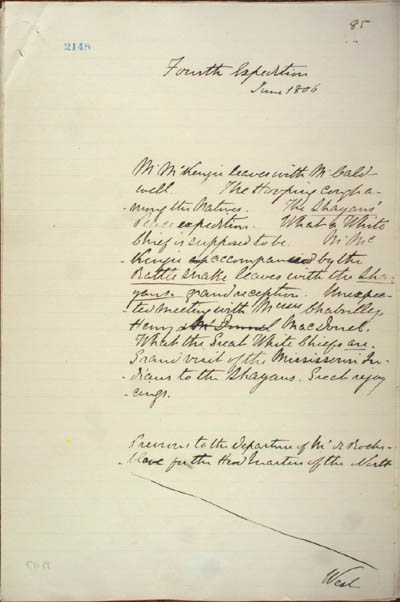 85
2148
Fourth Expedition
June 1806
Mr McKenzie leaves with Mr Cald-
well. The Hooping cough a-
-mong the Natives. The Shayans'
Peace expedition. What a White
Chief is supposed to be. Mr Mc
Kenzie accompanied by the
Rattle snake leaves with the Sha-
yans. grand reception. Unexpec-
-ted meeting with Messrs Chaboillez,
Henry & MacDonel.
What the Great White Chiefs are.
Grand visit of the Mississouri In-
-dians to the Shayans. Great rejoy
-cings.
Previous to the departure of Mr de Roche-
-blave for the Head Quarters of the North
West